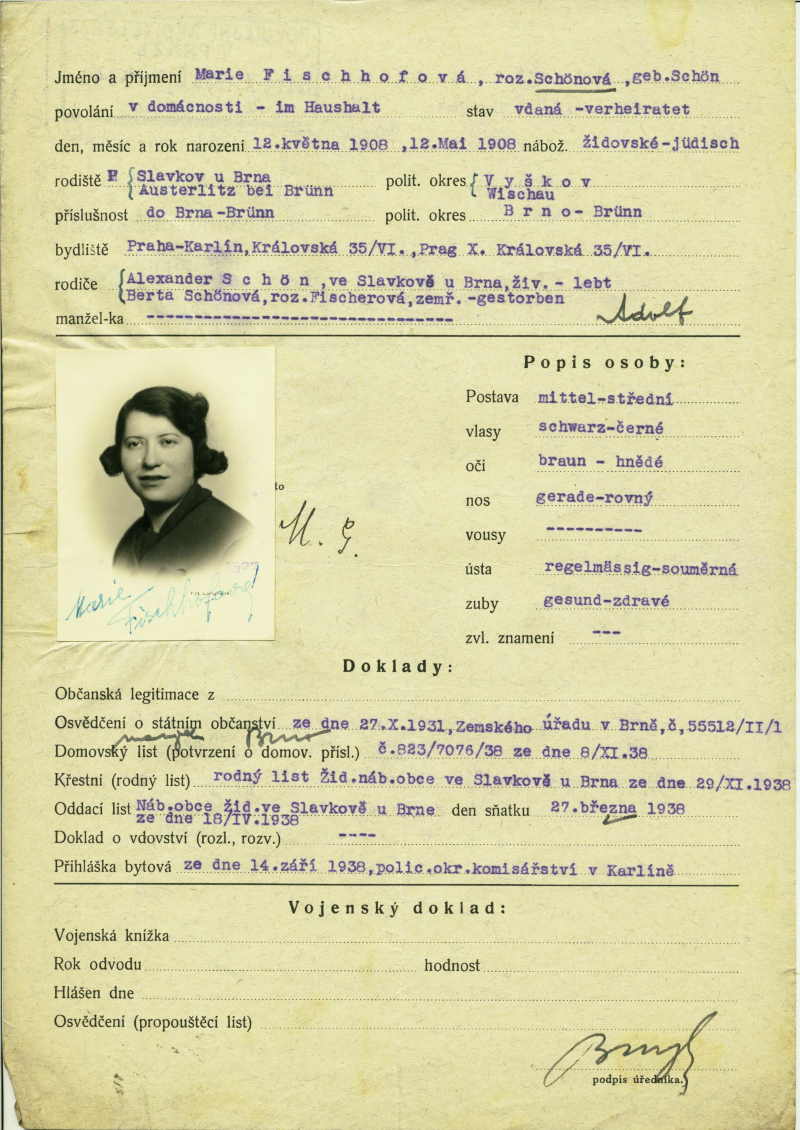 Jméno a příjmení Marie Fischhofová, roz.Schönová ,geb.Schön
povolání v domácnosti - im Haushalt stav vdaná -verheiratet
den, měsíc a rok narození 12.května 1908 ,12.Mai 1908 nábož. židovské-jüdisch
rodiště Slavkov u Brna polit. okres Vyškov
Austerlitz bei Brünn Wischau
příslušnost do Brna-Brünn polit. okres Brno- Brünn
bydliště Praha-Karlín,Královská 35/VI.,Prag X. Královská 35/VI.
rodiče Alexander Schön ,ve Slavkově u Brna,živ. - lebt
Berta Schönová,roz.Fischerová,zemř.-gestorben
manžel-ka -------------------------------- Adolf
Popis osoby:
Postava mittel-střední
vlasy schwarz-černé
oči braun - hnědé
to
nos gerade-rovný
M. G.
vousy ----------
ústa regelmässig-souměrná
zuby gesund-zdravé
Marie Fischhofová
zvl. znamení ---
Doklady:
Občanská legitimace z
Osvědčení o státním občanství ze dne 27.X.1931,Zemského úřadu v Brně,č,55512/II/1
manžel Brno
Domovský list (potvrzení o domov. přísl.) č.823/7076/38 ze dne 8/XI.38
Křestní (rodný list) rodný list Žid.náb.obce ve Slavkově u Brna ze dne 29/XI.1938
Oddací list Náb.obce žid.ve Slavkově u Brne den sňatku 27.března 1938
ze dne 18/IV.1938
Doklad o vdovství (rozl., rozv.) ----
Přihláška bytová ze dne 14.září 1938,polic.okr.komisářství v Karlíně
Vojenský doklad:
Vojenská knížka
Rok odvodu hodnost
Hlášen dne
Osvědčení (propouštěcí list)
podpis úředníka.